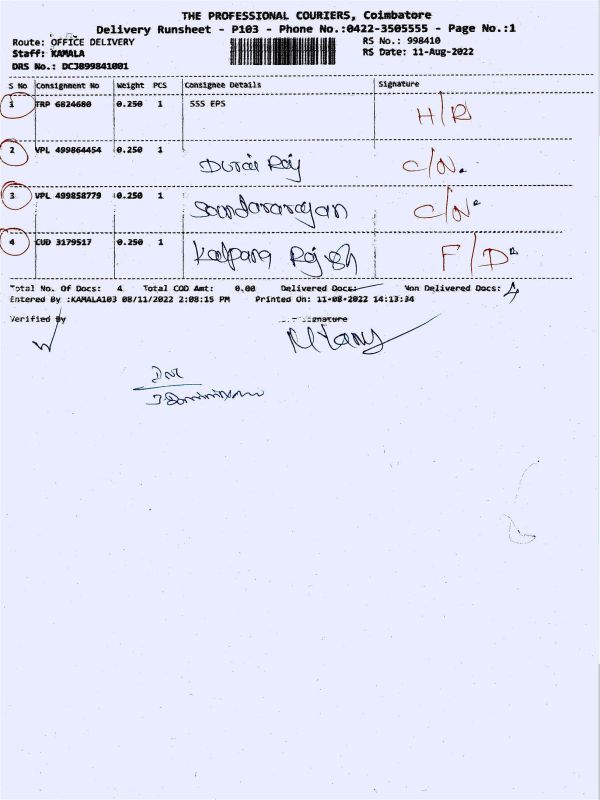 THE PROFESSIONAL COURIERS, Coimbatore
Delivery Runsheet - P103 - Phone No.:0422-3505555 - Page No.:1
Route: OFFICE DELIVERY RS No.: 998410
Staff: KAMALA RS Date: 11-Aug-2022
DRS No.: DCJ899841001
S No Consignment No Weight PCS Consignee Details Signature
1 TRP 6824680 0.250 1 SSS EPS H/R
2 VPL 499864454 0.250 1 Durai Raj C/N.
3 VPL 499858779 0.250 1 Soundararajan C/N.
4 CUD 3179517 0.250 1 Kalpana Rajesh F/D
Total No. Of Docs: 4 Total COD Amt: 0.00 Delivered Docs: Non Delivered Docs: 4
Entered By :KAMALA103 08/11/2022 2:08:15 PM Printed On: 11-08-2022 14:13:34
Verified By Signature